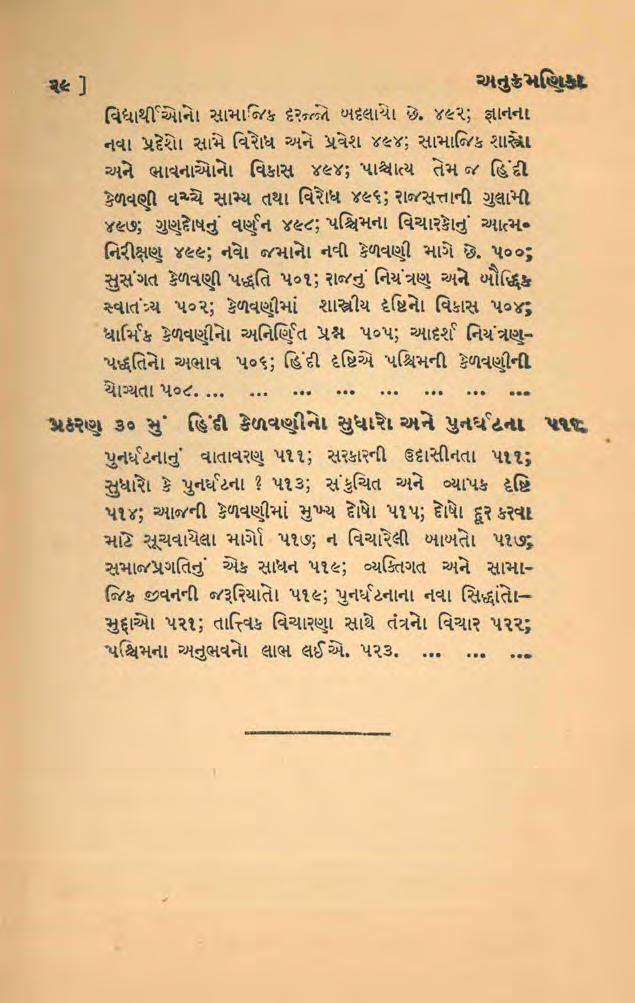 ૨૯ ] અનુક્રમણિકા
વિદ્યાર્થીઓનો સામાજિક દરજ્જો બદલાયો છે. ૪૯૨; જ્ઞાનના
નવા પ્રદેશો સામે વિરોધ અને પ્રવેશ ૪૯૪; સામાજિક શાસ્ત્રો
અને ભાવનાઓનો વિકાસ ૪૯૪; પાશ્ચાત્ય તેમ જ હિંદી
કેળવણી વચ્ચે સામ્ય તથા વિરોધ ૪૯૬; રાજસત્તાની ગુલામી
૪૯૭; ગુણદોષનું વર્ણન ૪૯૮; પશ્ચિમના વિચારકોનું આત્મ-
નિરીક્ષણ ૪૯૯; નવો જમાનો નવી કેળવણી માગે છે. ૫૦૦;
સુસંગત કેળવણી પદ્ધતિ ૫૦૧; રાજનું નિયંત્રણ અને બૌદ્ધિક
સ્વાતંત્ર્ય ૫૦૨; કેળવણીમાં શાસ્ત્રીય દૃષ્ટિનો વિકાસ ૫૦૪;
ધાર્મિક કેળવણીનો અનિર્ણિત પ્રશ્ન ૫૦૫; આદર્શ નિયંત્રણ-
પદ્ધતિનો અભાવ ૫૦૬; હિંદી દૃષ્ટિએ પશ્ચિમની કેળવણીની
યોગ્યતા ૫૦૮. ... ... ... ... ... ... ... ...
પ્રકરણ ૩૦ મું હિંદી કેળવણીનો સુધારો અને પુનર્ઘટના ૫૧૧
પુનર્ઘટનાનું વાતાવરણ ૫૧૧; સરકારની ઉદાસીનતા ૫૧૧;
સુધારો કે પુનર્ઘટના ? ૫૧૩; સંકુચિત અને વ્યાપક દૃષ્ટિ
૫૧૪; આજની કેળવણીમાં મુખ્ય દોષો ૫૧૫; દોષો દૂર કરવા
માટે સૂચવાયેલા માર્ગો ૫૧૭; ન વિચારેલી બાબતો ૫૧૭;
સમાજપ્રગતિનું એક સાધન ૫૧૯; વ્યક્તિગત અને સામા-
જિક જીવનની જરૂરિયાતો ૫૧૯; પુનર્ઘટનાના નવા સિદ્ધાંતો-
મુદ્દાઓ ૫૨૧; તાત્ત્વિક વિચારણા સાથે તંત્રનો વિચાર ૫૨૨;
પશ્ચિમના અનુભવનો લાભ લઈએ. ૫૨૩. ... ... ...